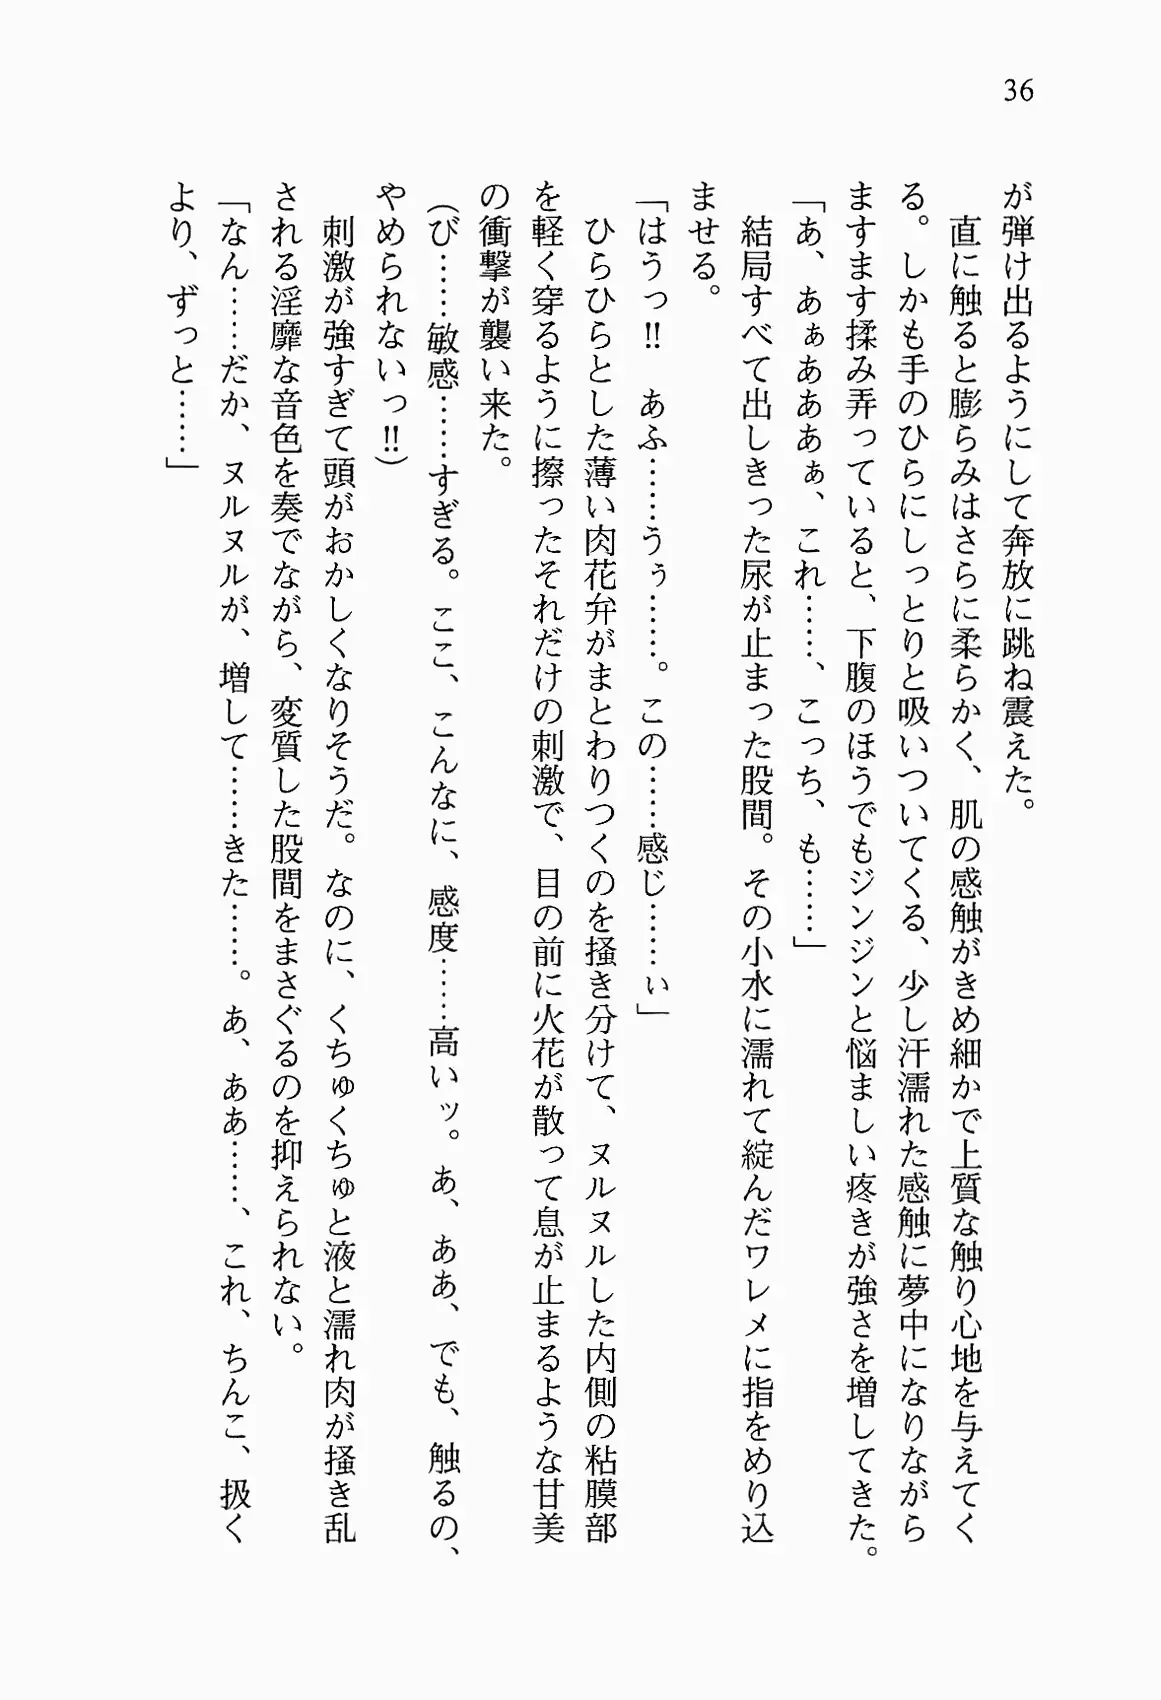 36
が弾け出るようにして奔放に跳ね震えた。
　直に触ると膨らみはさらに柔らかく、肌の感触がきめ細かで上質な触り心地を与えてく
る。しかも手のひらにしっとりと吸いついてくる、少し汗濡れた感触に夢中になりながら
ますます揉み弄っていると、下腹のほうでもジンジンと悩ましい疼きが強さを増してきた。
「あ、あぁあああぁ、これ……、こっち、も……」
　結局すべて出しきった尿が止まった股間。その小水に濡れて綻んだワレメに指をめり込
ませる。
「はうっ!!　あふ……うぅ……。この……感じ……ぃ」
　ひらひらとした薄い肉花弁がまとわりつくのを掻き分けて、ヌルヌルした内側の粘膜部
を軽く穿るように擦ったそれだけの刺激で、目の前に火花が散って息が止まるような甘美
の衝撃が襲い来た。
(び……敏感……すぎる。ここ、こんなに、感度……高いッ。あ、ああ、でも、触るの、
やめられないっ!!)
　刺激が強すぎて頭がおかしくなりそうだ。なのに、くちゅくちゅと液と濡れ肉が掻き乱
される淫靡な音色を奏でながら、変質した股間をまさぐるのを抑えられない。
「なん……だか、ヌルヌルが、増して……きた……。あ、ああ……、これ、ちんこ、扱く
より、ずっと……」